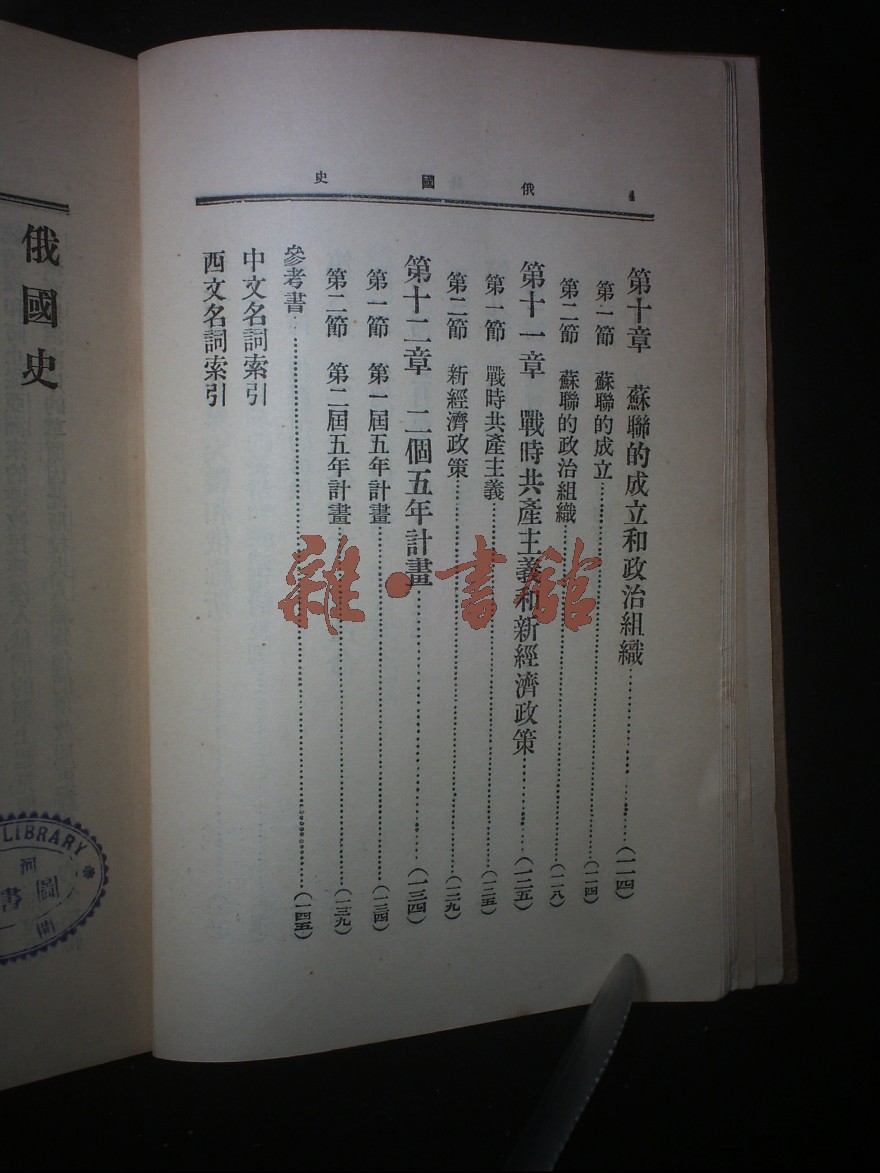 俄國史 4
第十章 蘇聯的成立和政治組織……(一一四)
第一節 蘇聯的成立……(一一四)
第二節 蘇聯的政治組織……(一一八)
第十一章 戰時共產主義和新經濟政策……(一二五)
第一節 戰時共產主義……(一二五)
第二節 新經濟政策……(一二九)
第十二章 二個五年計畫……(一三四)
第一節 第一屆五年計畫……(一三四)
第二節 第二屆五年計畫……(一三九)
參考書……(一四五)
中文名詞索引
西文名詞索引
俄國史
LIBRARY
雜·書館